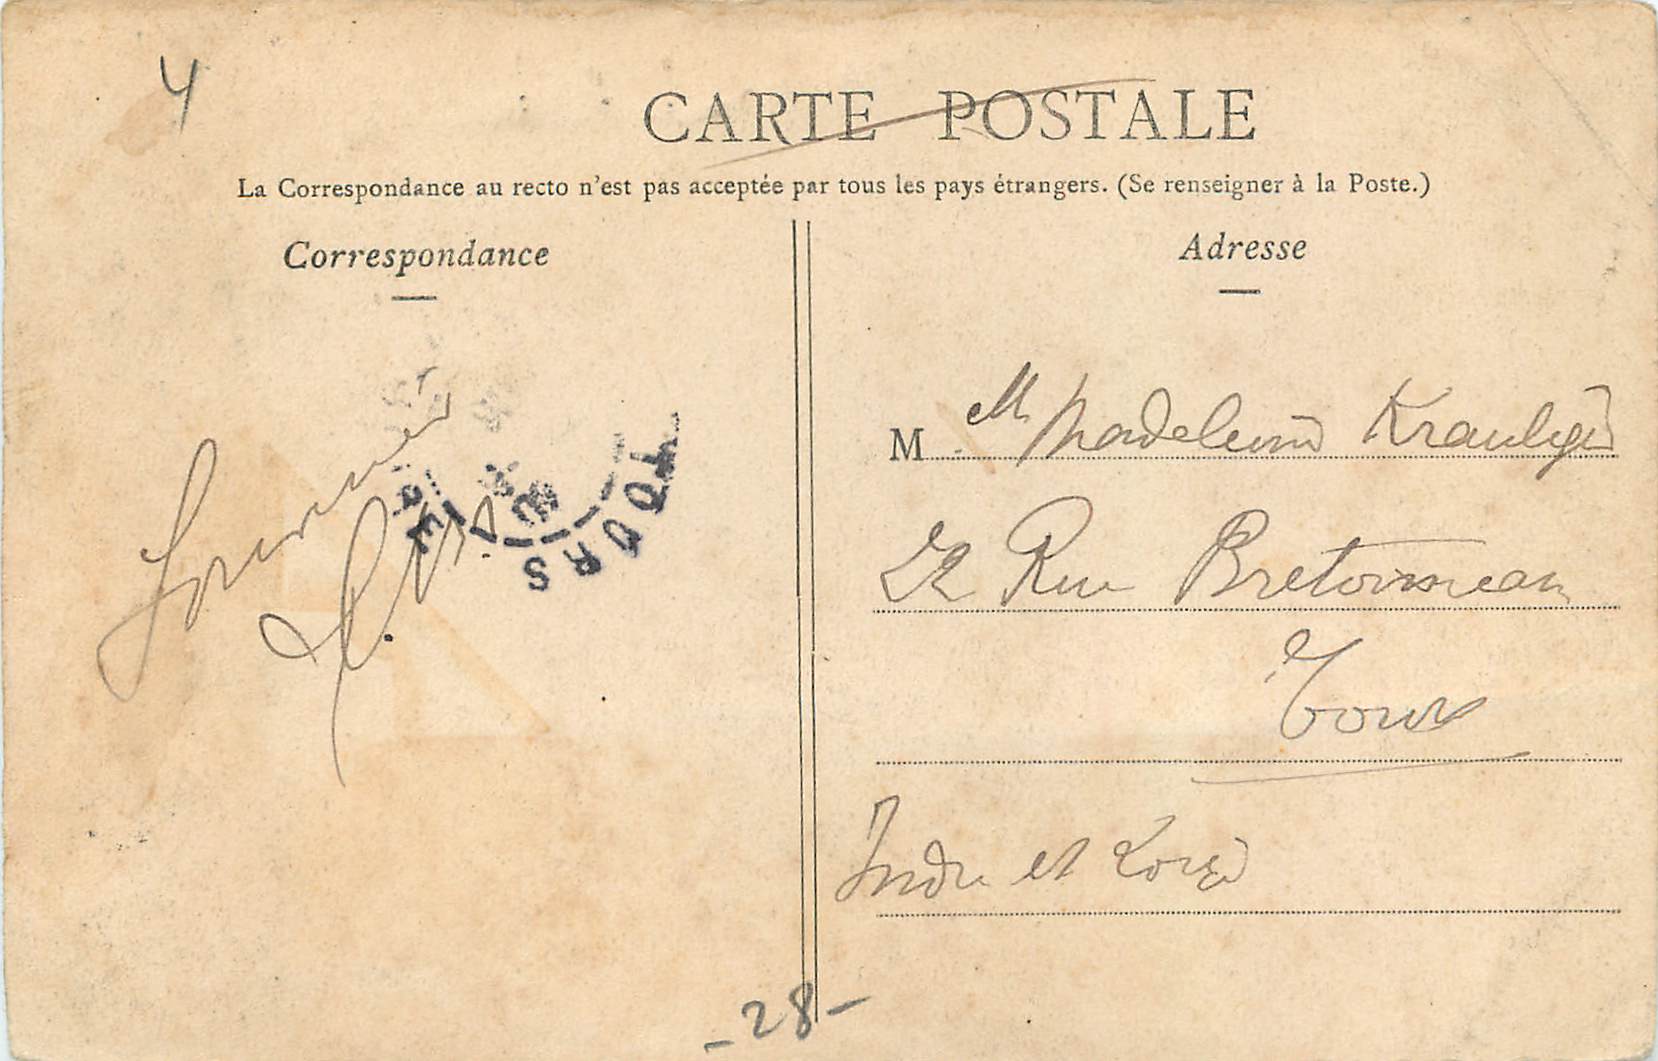 4
CARTE POSTALE
La Correspondance au recto n'est pas acceptée par tous les pays étrangers. (Se renseigner à la Poste.)
Correspondance
Adresse
M elle Madeleine
22 Rue Bretonneau
Tours
Indre et Loire
Souvenir
TOURS
-28-